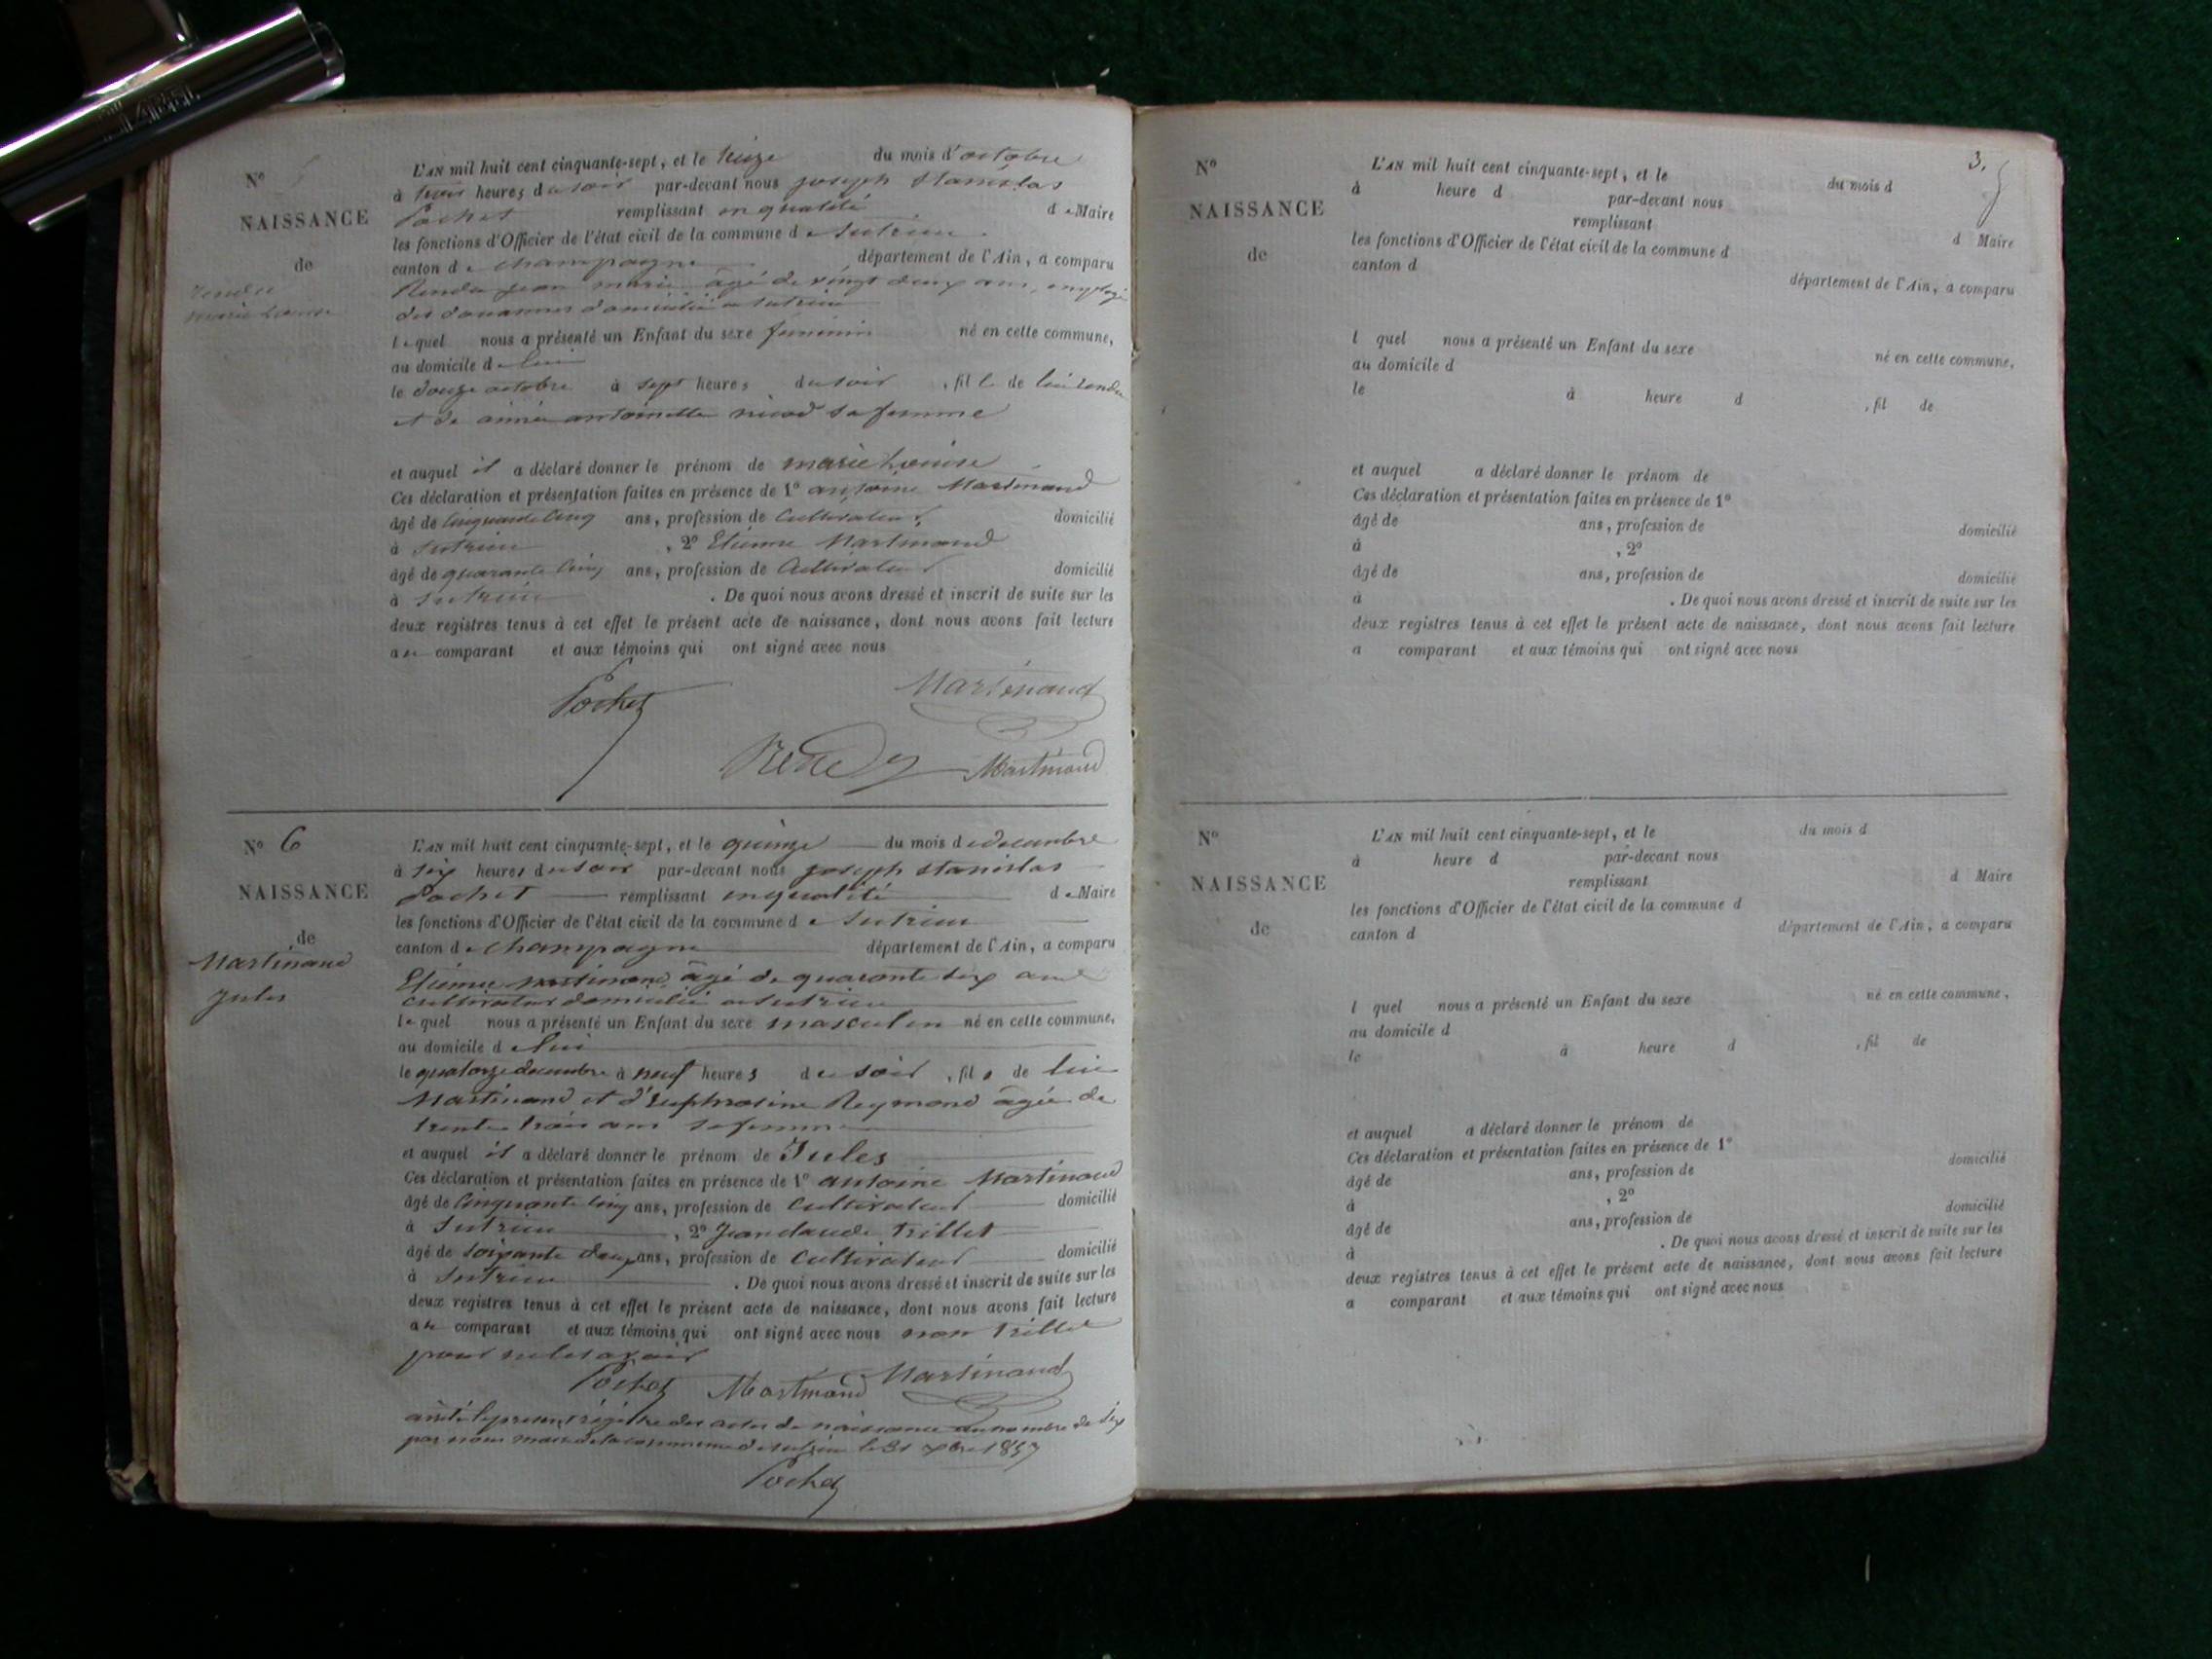 Nº
NAISSANCE
de
Rendu
marie Louise
L'AN mil huit cent cinquante-sept, et le treize du mois d'octobre
à trois heures du soir par-devant nous joseph stanislas
Pochet remplissant en qualité de Maire
les fonctions d'Officier de l'état civil de la commune de Sutrieu
canton de champagne département de l'Ain, a comparu
Rendu jean marie âgé de vingt deux ans, employé
des douannes domicilié a sutrieu
lequel nous a présenté un Enfant du sexe feminin né en cette commune,
au domicile de lui
le douze octobre à sept heures du soir, fille de lui Rendu
et de aimée antoinette nicod sa femme
et auquel il a déclaré donner le prénom de marie Louise
Ces déclaration et présentation faites en présence de 1º antoine Martinand
âgé de cinquante cinq ans, profession de cultivateur domicilié
à Sutrieu, 2º Etienne Martinand
âgé de quarante cinq ans, profession de Cultivateur domicilié
à Sutrieu. De quoi nous avons dressé et inscrit de suite sur les
deux registres tenus à cet effet le présent acte de naissance, dont nous avons fait lecture
au comparant et aux témoins qui ont signé avec nous
Pochet Martinand
Martinand
Nº 6
NAISSANCE
de
Martinand
jules
L'AN mil huit cent cinquante-sept, et le quinze du mois de decembre
à six heures du soir par-devant nous joseph stanislas
Pochet remplissant en qualité de Maire
les fonctions d'Officier de l'état civil de la commune de Sutrieu
canton de champagne département de l'Ain, a comparu
Etienne martinand âgé de quarante six ans
cultivateur domicilié a sutrieu
lequel nous a présenté un Enfant du sexe masculin né en cette commune,
au domicile de lui
le quatorze decembre à neuf heures du soir, fils de lui
Martinand et d'Euphrosine Reymond âgée de
trente trois ans sa femme
et auquel il a déclaré donner le prénom de Jules
Ces déclaration et présentation faites en présence de 1º antoine Martinand
âgé de Cinquante cinq ans, profession de cultivateur domicilié
à Sutrieu, 2º Jean claude Trillet
âgé de soixante deux ans, profession de cultivateur domicilié
à Sutrieu. De quoi nous avons dressé et inscrit de suite sur les
deux registres tenus à cet effet le présent acte de naissance, dont nous avons fait lecture
au comparant et aux témoins qui ont signé avec nous non Trillet
pour ne le savoir
Pochet Martinand Martinand
arrêté le present régistre des actes de naissance au nombre de six
par nous maire de la commune de sutrieu le 31 xbre 1857
Pochet
3.
Nº
NAISSANCE
de
L'AN mil huit cent cinquante-sept, et le du mois d
à heure d par-devant nous
remplissant d Maire
les fonctions d'Officier de l'état civil de la commune d
canton d département de l'Ain, a comparu
l quel nous a présenté un Enfant du sexe né en cette commune,
au domicile d
le à heure d , fil de
et auquel a déclaré donner le prénom de
Ces déclaration et présentation faites en présence de 1º
âgé de ans, profession de domicilié
à , 2º
âgé de ans, profession de domicilié
à . De quoi nous avons dressé et inscrit de suite sur les
deux registres tenus à cet effet le présent acte de naissance, dont nous avons fait lecture
a comparant et aux témoins qui ont signé avec nous
Nº
NAISSANCE
de
L'AN mil huit cent cinquante-sept, et le du mois d
à heure d par-devant nous
remplissant d Maire
les fonctions d'Officier de l'état civil de la commune d
canton d département de l'Ain, a comparu
l quel nous a présenté un Enfant du sexe né en cette commune,
au domicile d
le à heure d , fil de
et auquel a déclaré donner le prénom de
Ces déclaration et présentation faites en présence de 1º
âgé de ans, profession de domicilié
à , 2º
âgé de ans, profession de domicilié
à . De quoi nous avons dressé et inscrit de suite sur les
deux registres tenus à cet effet le présent acte de naissance, dont nous avons fait lecture
a comparant et aux témoins qui ont signé avec nous